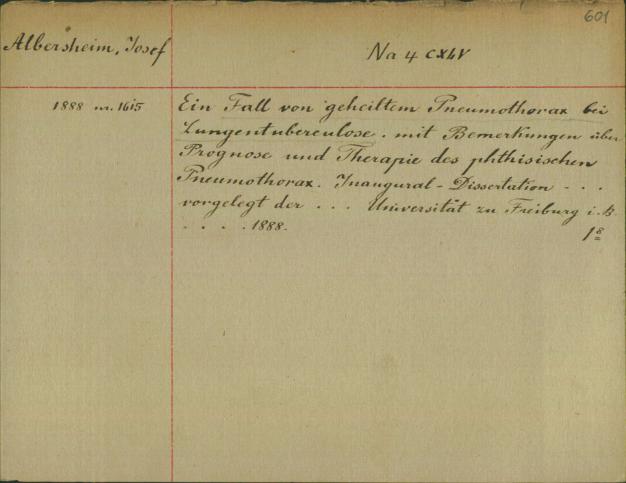 601
Albersheim, Josef
Na 4 CXLV
1888 nr. 1615
Ein Fall von geheiltem Pneumothorax bei
Lungentuberculose. mit Bemerkungen über
Prognose und Therapie des phthisischen
Pneumothorax. Inaugural-Dissertation - - -
vorgelegt der . . . Universität zu Freiburg i. B.
. . . . 1888.
18